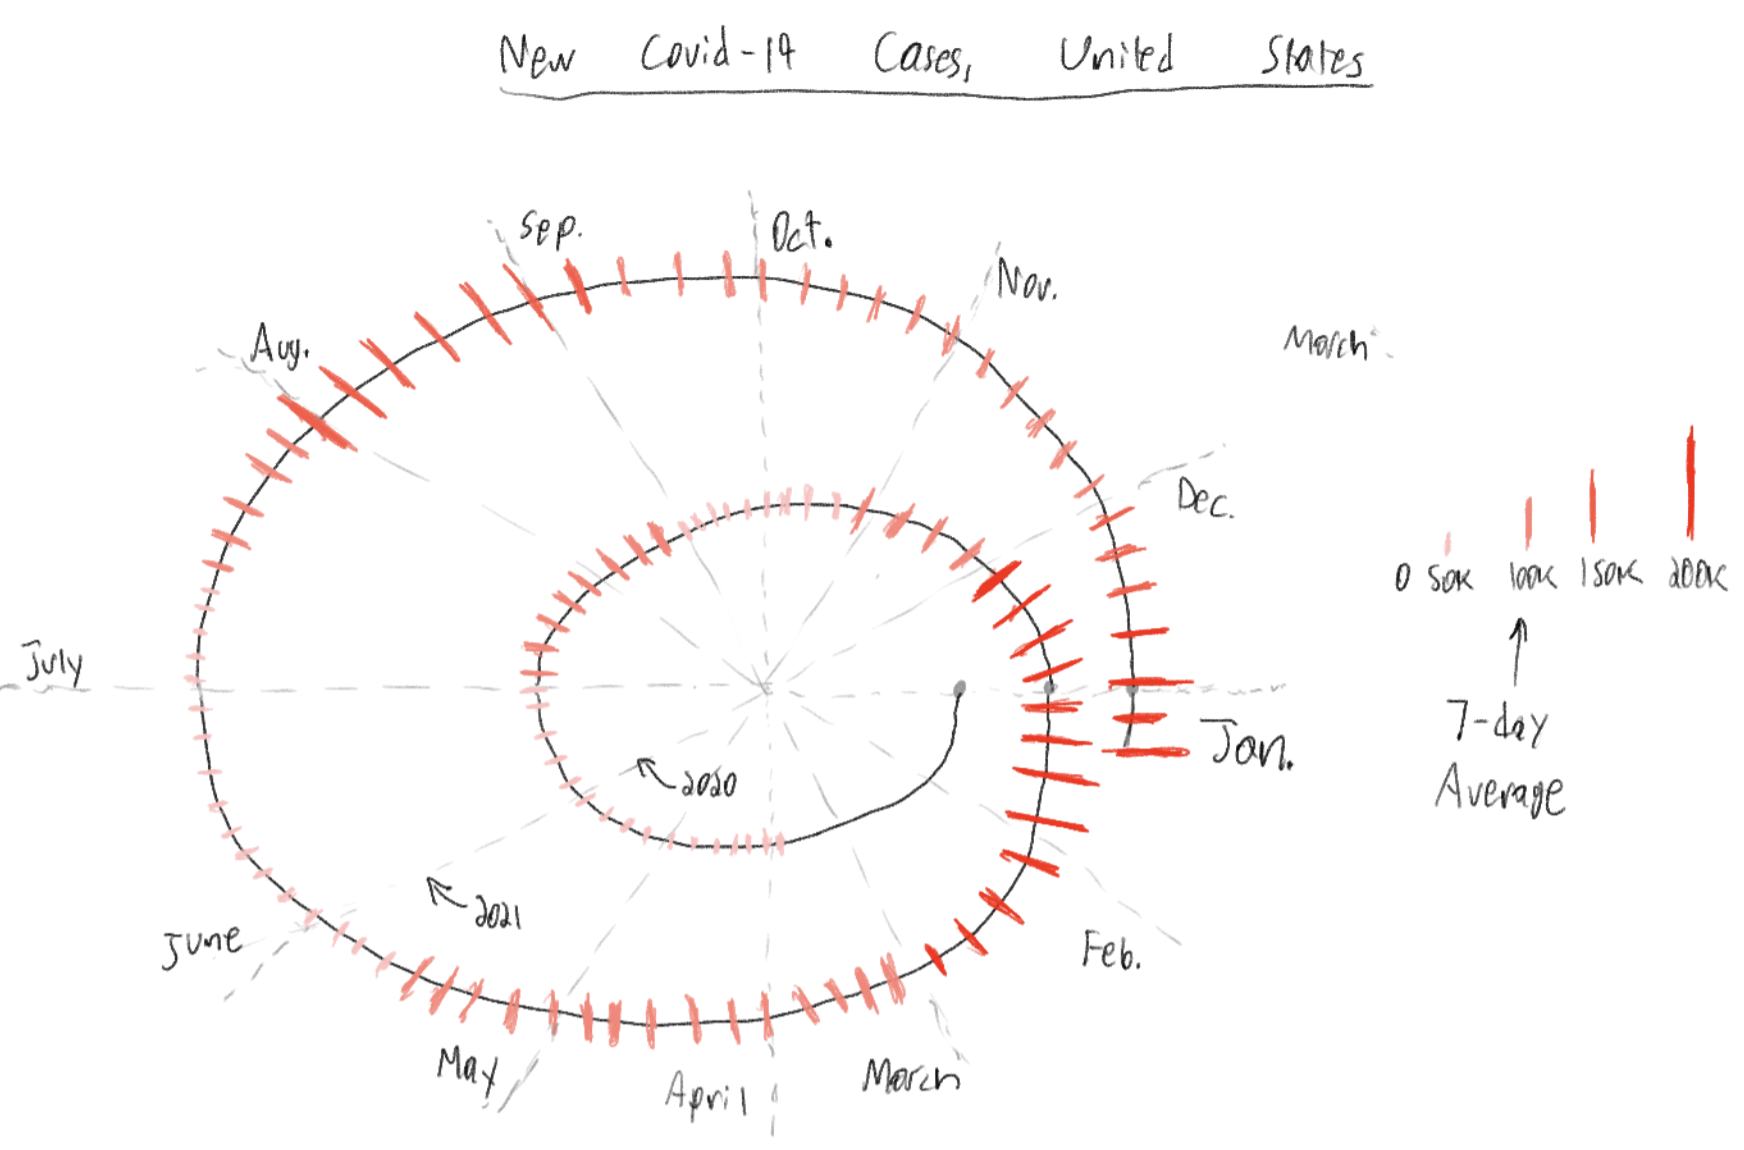 New Covid-19 Cases, United States
Sep.
Oct.
Nov.
Aug.
March
Dec.
0 50K 100K 150K 200K
July
7-day
Average
Jan.
2020
2021
June
Feb.
May
April
March